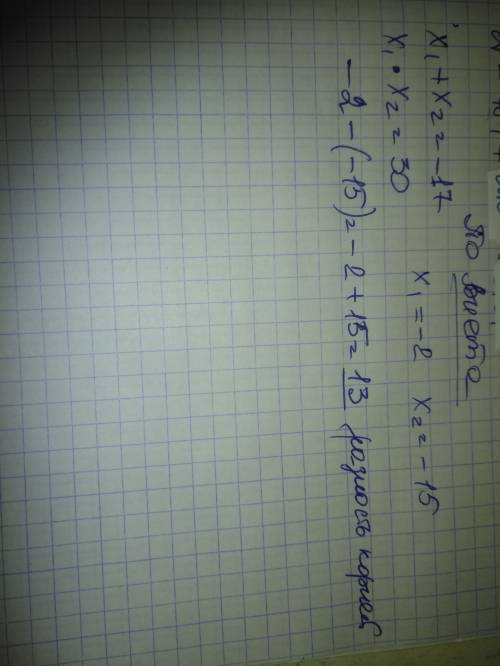 По Виета
x₁ + x₂ = -17 x₁ = -2 x₂ = -15
x₁ • x₂ = 30
-2 - (-15) = -2 + 15 = 13 разность корней